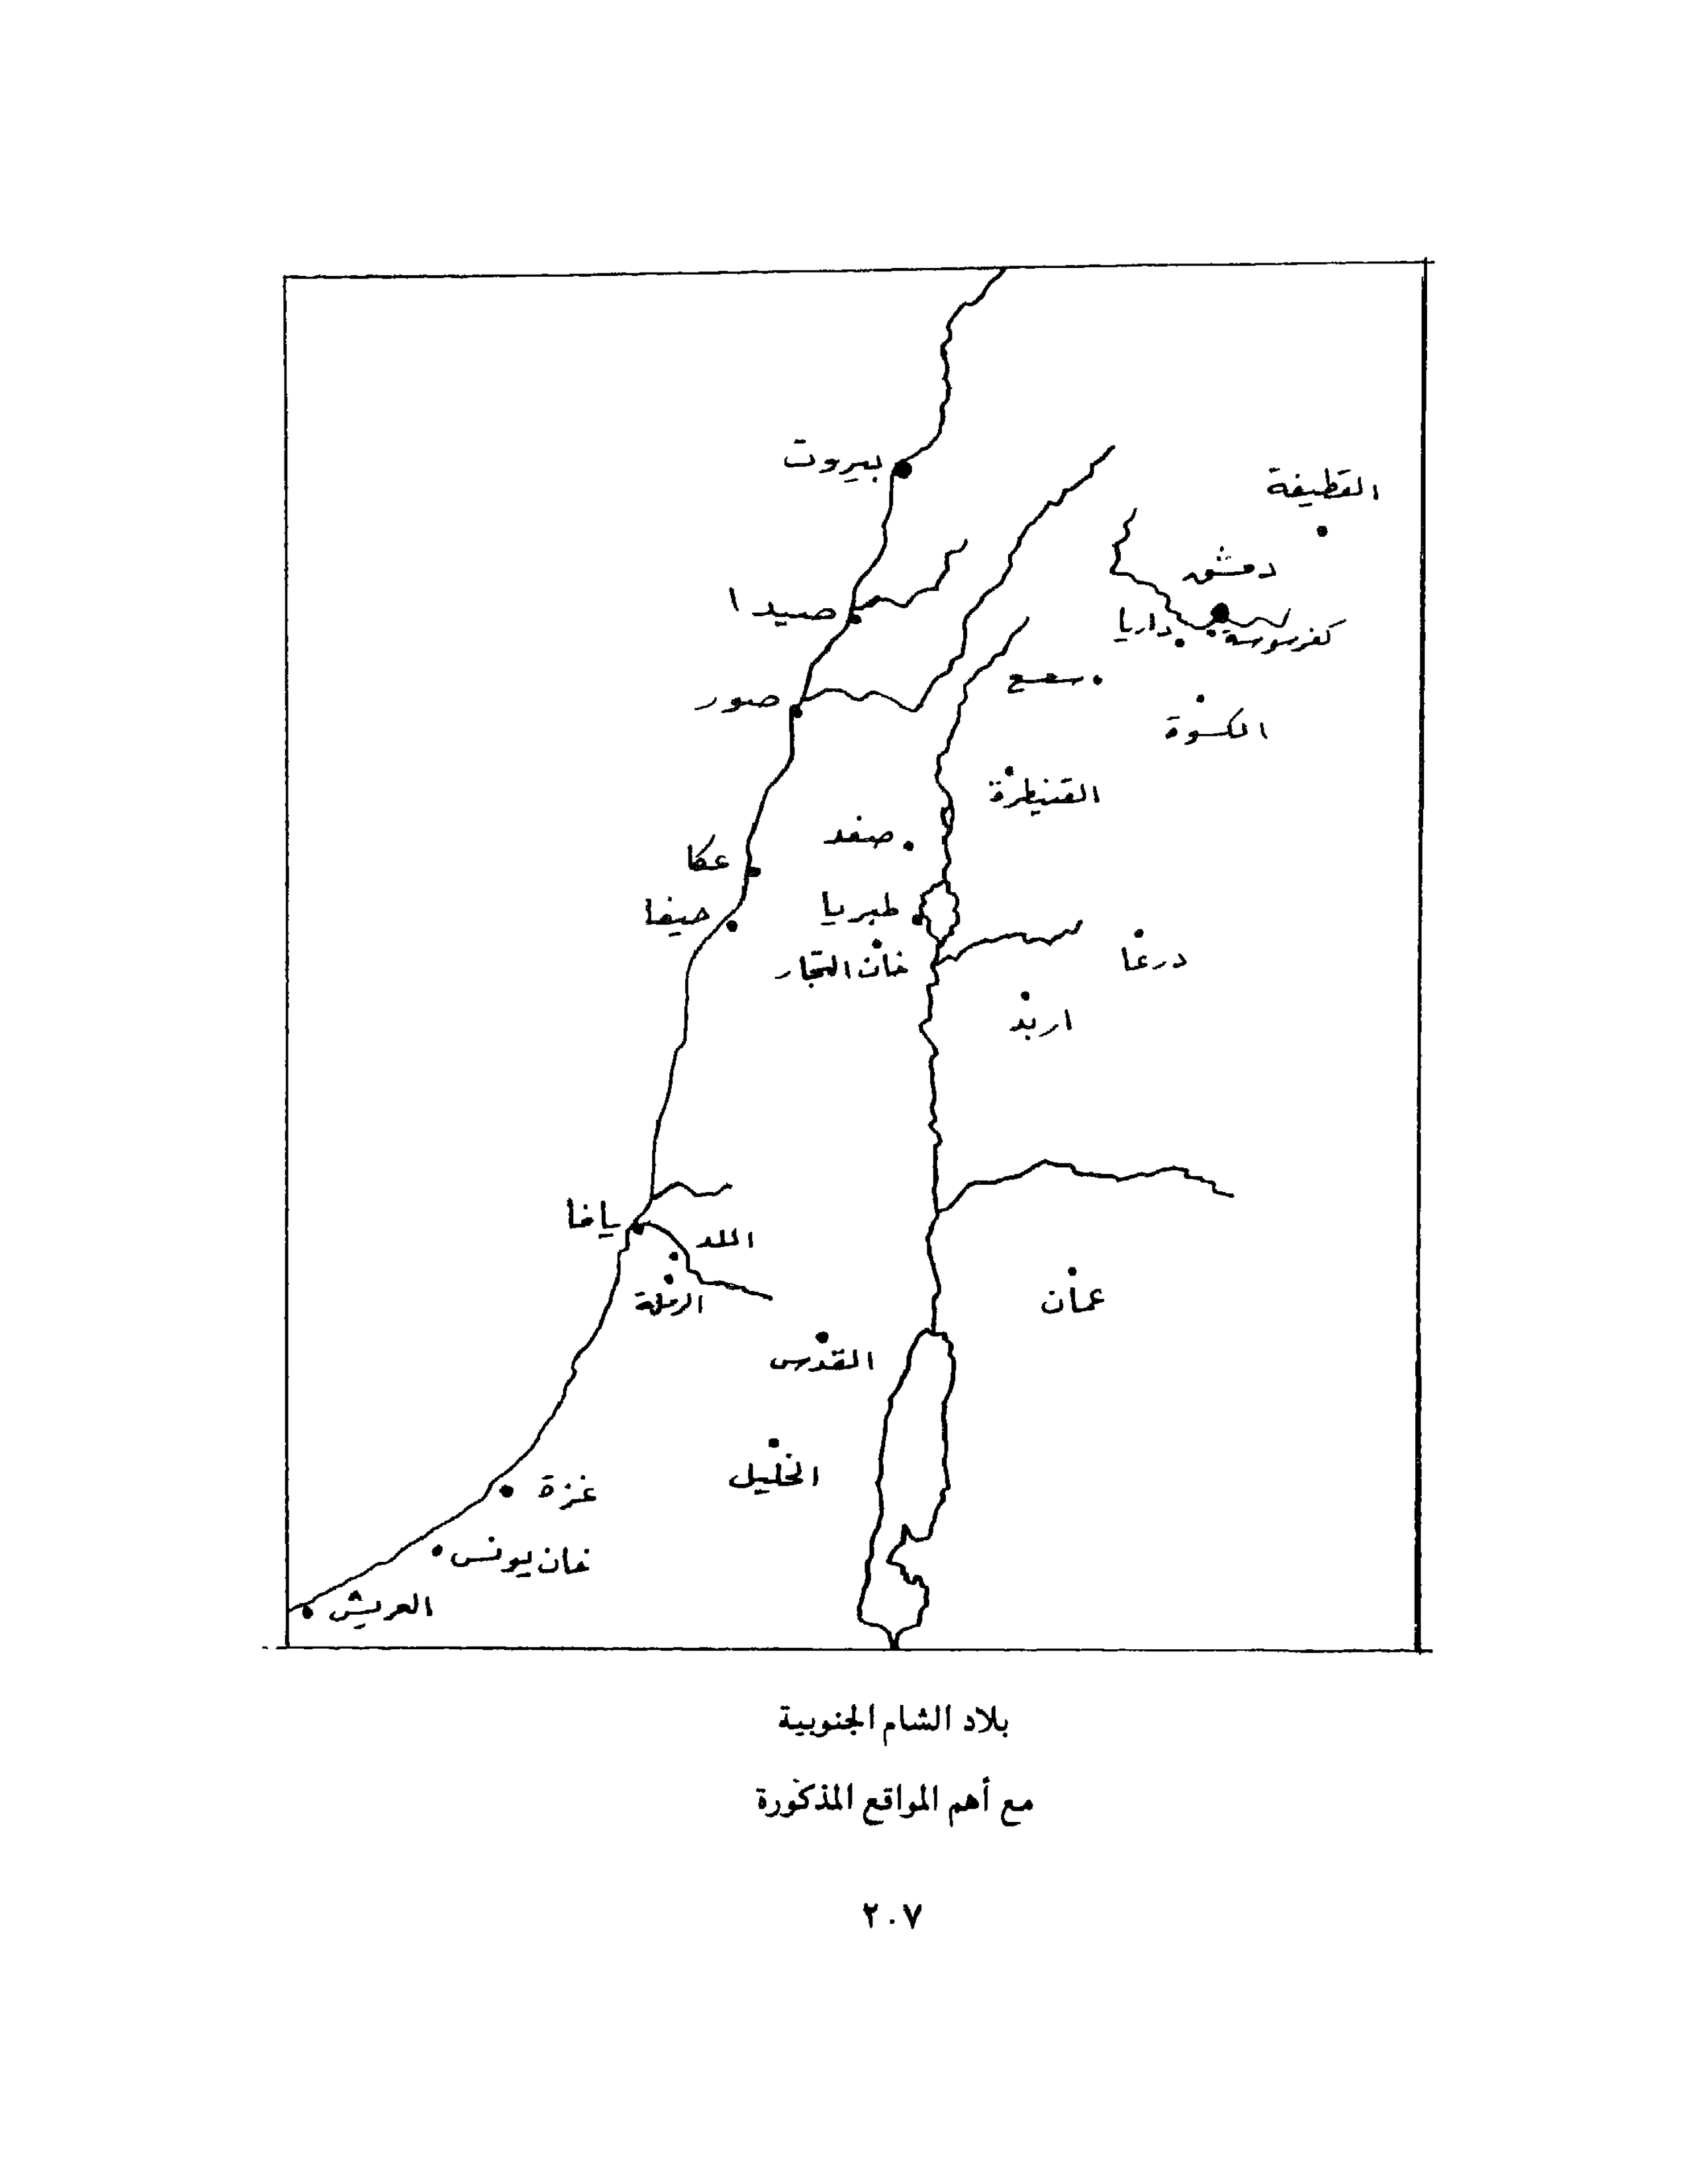 بيروت
القطيفة
دمشق
صيدا
داريا
كفرسوسة
سعسع
صور
الكسوة
القنيطرة
صفد
عكا
طبريا
حيفا
خان التجار
درعا
اربد
يافا
اللد
الرملة
عمان
القدس
الخليل
غزة
خان يونس
العريش
بلاد الشام الجنوبية
مع أهم المواقع المذكورة
٢٠٧